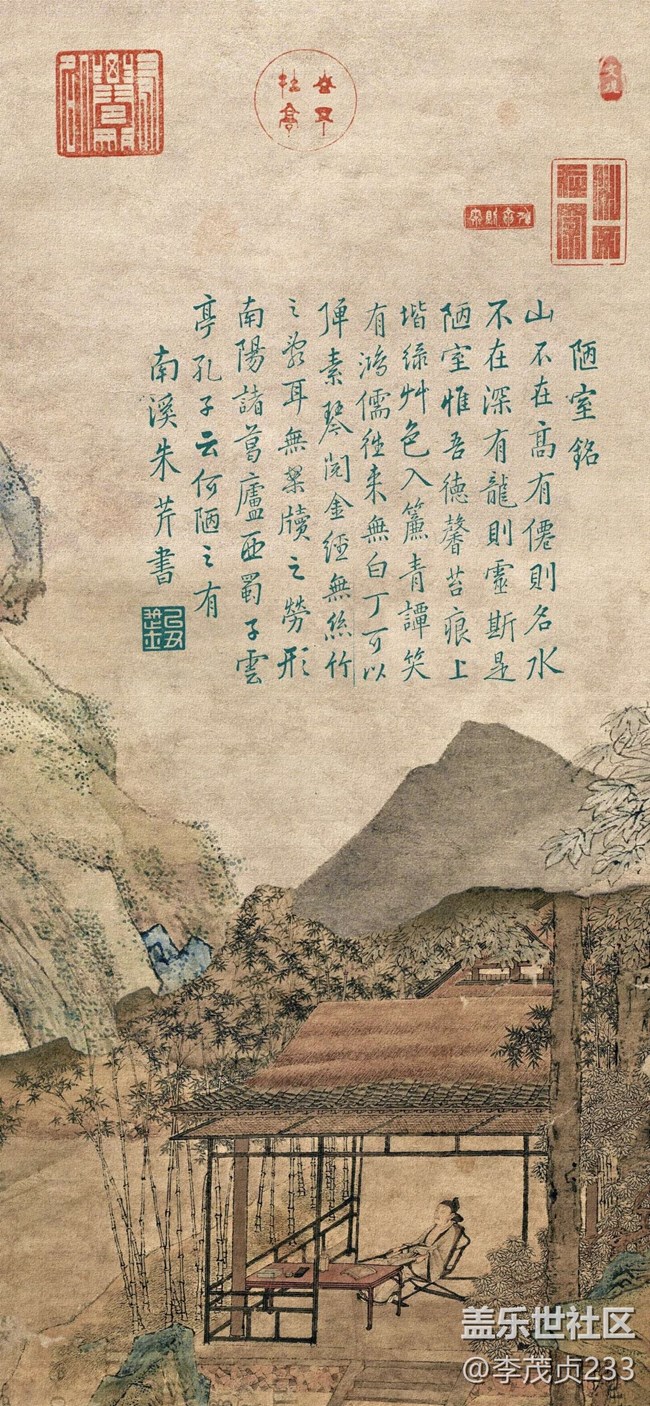 陋室銘
山不在高有僊則名水
不在深有龍則靈斯是
陋室惟吾德馨苔痕上
堦綠艸色入簾青譚笑
有鴻儒往来無白丁可以
弾素琴閲金經無絲竹
之亂耳無案牘之勞形
南陽諸葛廬西蜀子雲
亭孔子云何陋之有
南溪朱芹書
盖乐世社区
@李茂贞233